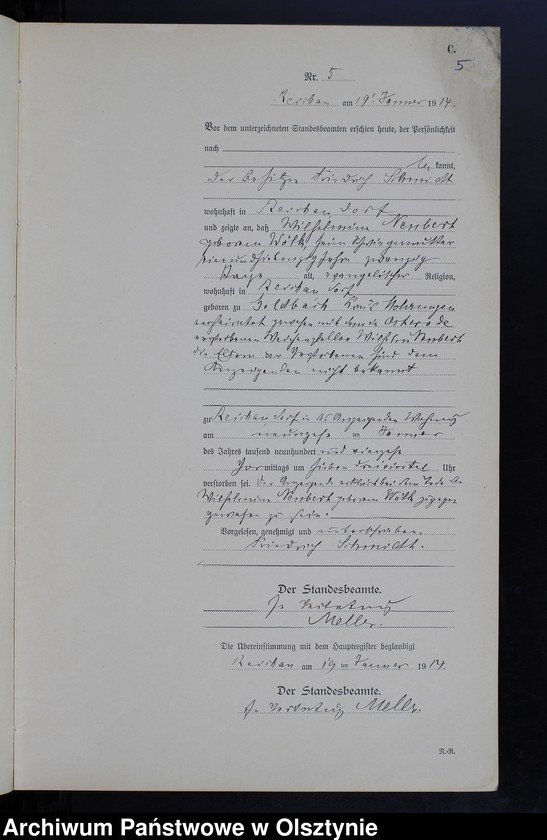 C.
5
Nr. 5
Reichau am 19. Januar 1914.
Vor dem unterzeichneten Standesbeamten erschien heute, der Persönlichkeit
nach
be kannt,
der Besitzer Friedrich Schmidt
wohnhaft in Reichau Dorf
und zeigte an, daß Wilhelmine Neubert
geborene Wölk, seine Schwiegermutter
vierundsiebenzig Jahre zwanzig
Tage alt, evangelischer Religion,
wohnhaft in Reichau Dorf
geboren zu Goldbach Kreis Mohrungen
verheiratet gewesen mit dem in Osterode
verstorbenen Weichensteller Wilhelm Neubert
die Eltern der Verstorbenen sind dem
Anzeigenden nicht bekannt
zu Reichau Dorf in des Anzeigenden Wohnung
am neunzehn ten Januar
des Jahres tausend neunhundert und vierzehn
Vor mittags um sieben dreiviertel Uhr
verstorben sei. Der Anzeigende erklärt bei dem Tode der
Wilhelmine Neubert geborene Wölk zugegen
gewesen zu sein.
Vorgelesen, genehmigt und unterschrieben.
Friedrich Schmidt.
Der Standesbeamte.
In Vertretung
Meller.
Die Übereinstimmung mit dem Hauptregister beglaubigt
Reichau am 19 ten Januar 1914.
Der Standesbeamte.
In Vertretung Meller.
N.-R.
Archiwum Państwowe w Olsztynie